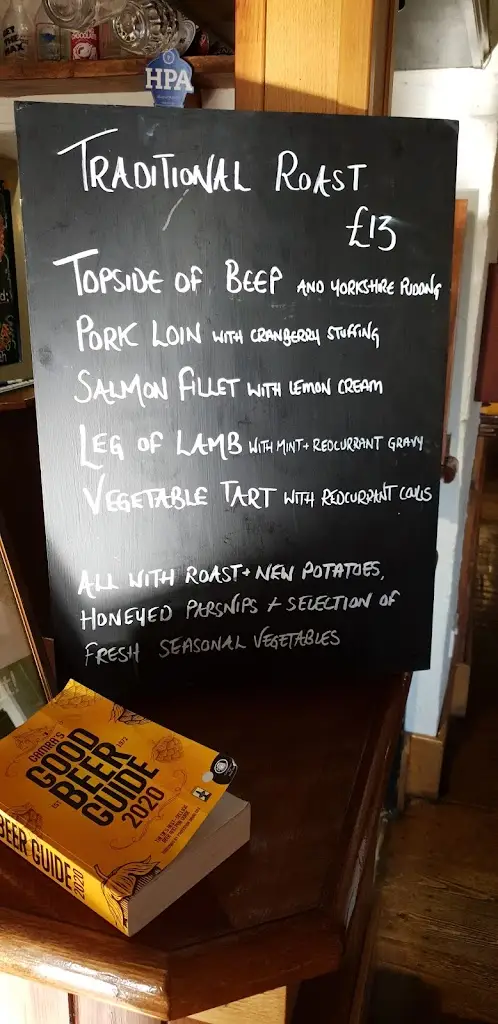 HPA
TRADITIONAL ROAST
£13
TOPSIDE OF BEEP AND YORKSHIRE PUDDING
PORK LOIN WITH CRANBERRY STUFFING
SALMON FILLET WITH LEMON CREAM
LEG OF LAMB WITH MINT + REDCURRANT GRAVY
VEGETABLE TART WITH REDCURRANT COULIS
ALL WITH ROAST + NEW POTATOES,
HONEYED PARSNIPS + SELECTION OF
FRESH SEASONAL VEGETABLES
CAMRA'S
GOOD
BEER
GUIDE
2020
BEER GUIDE 2020